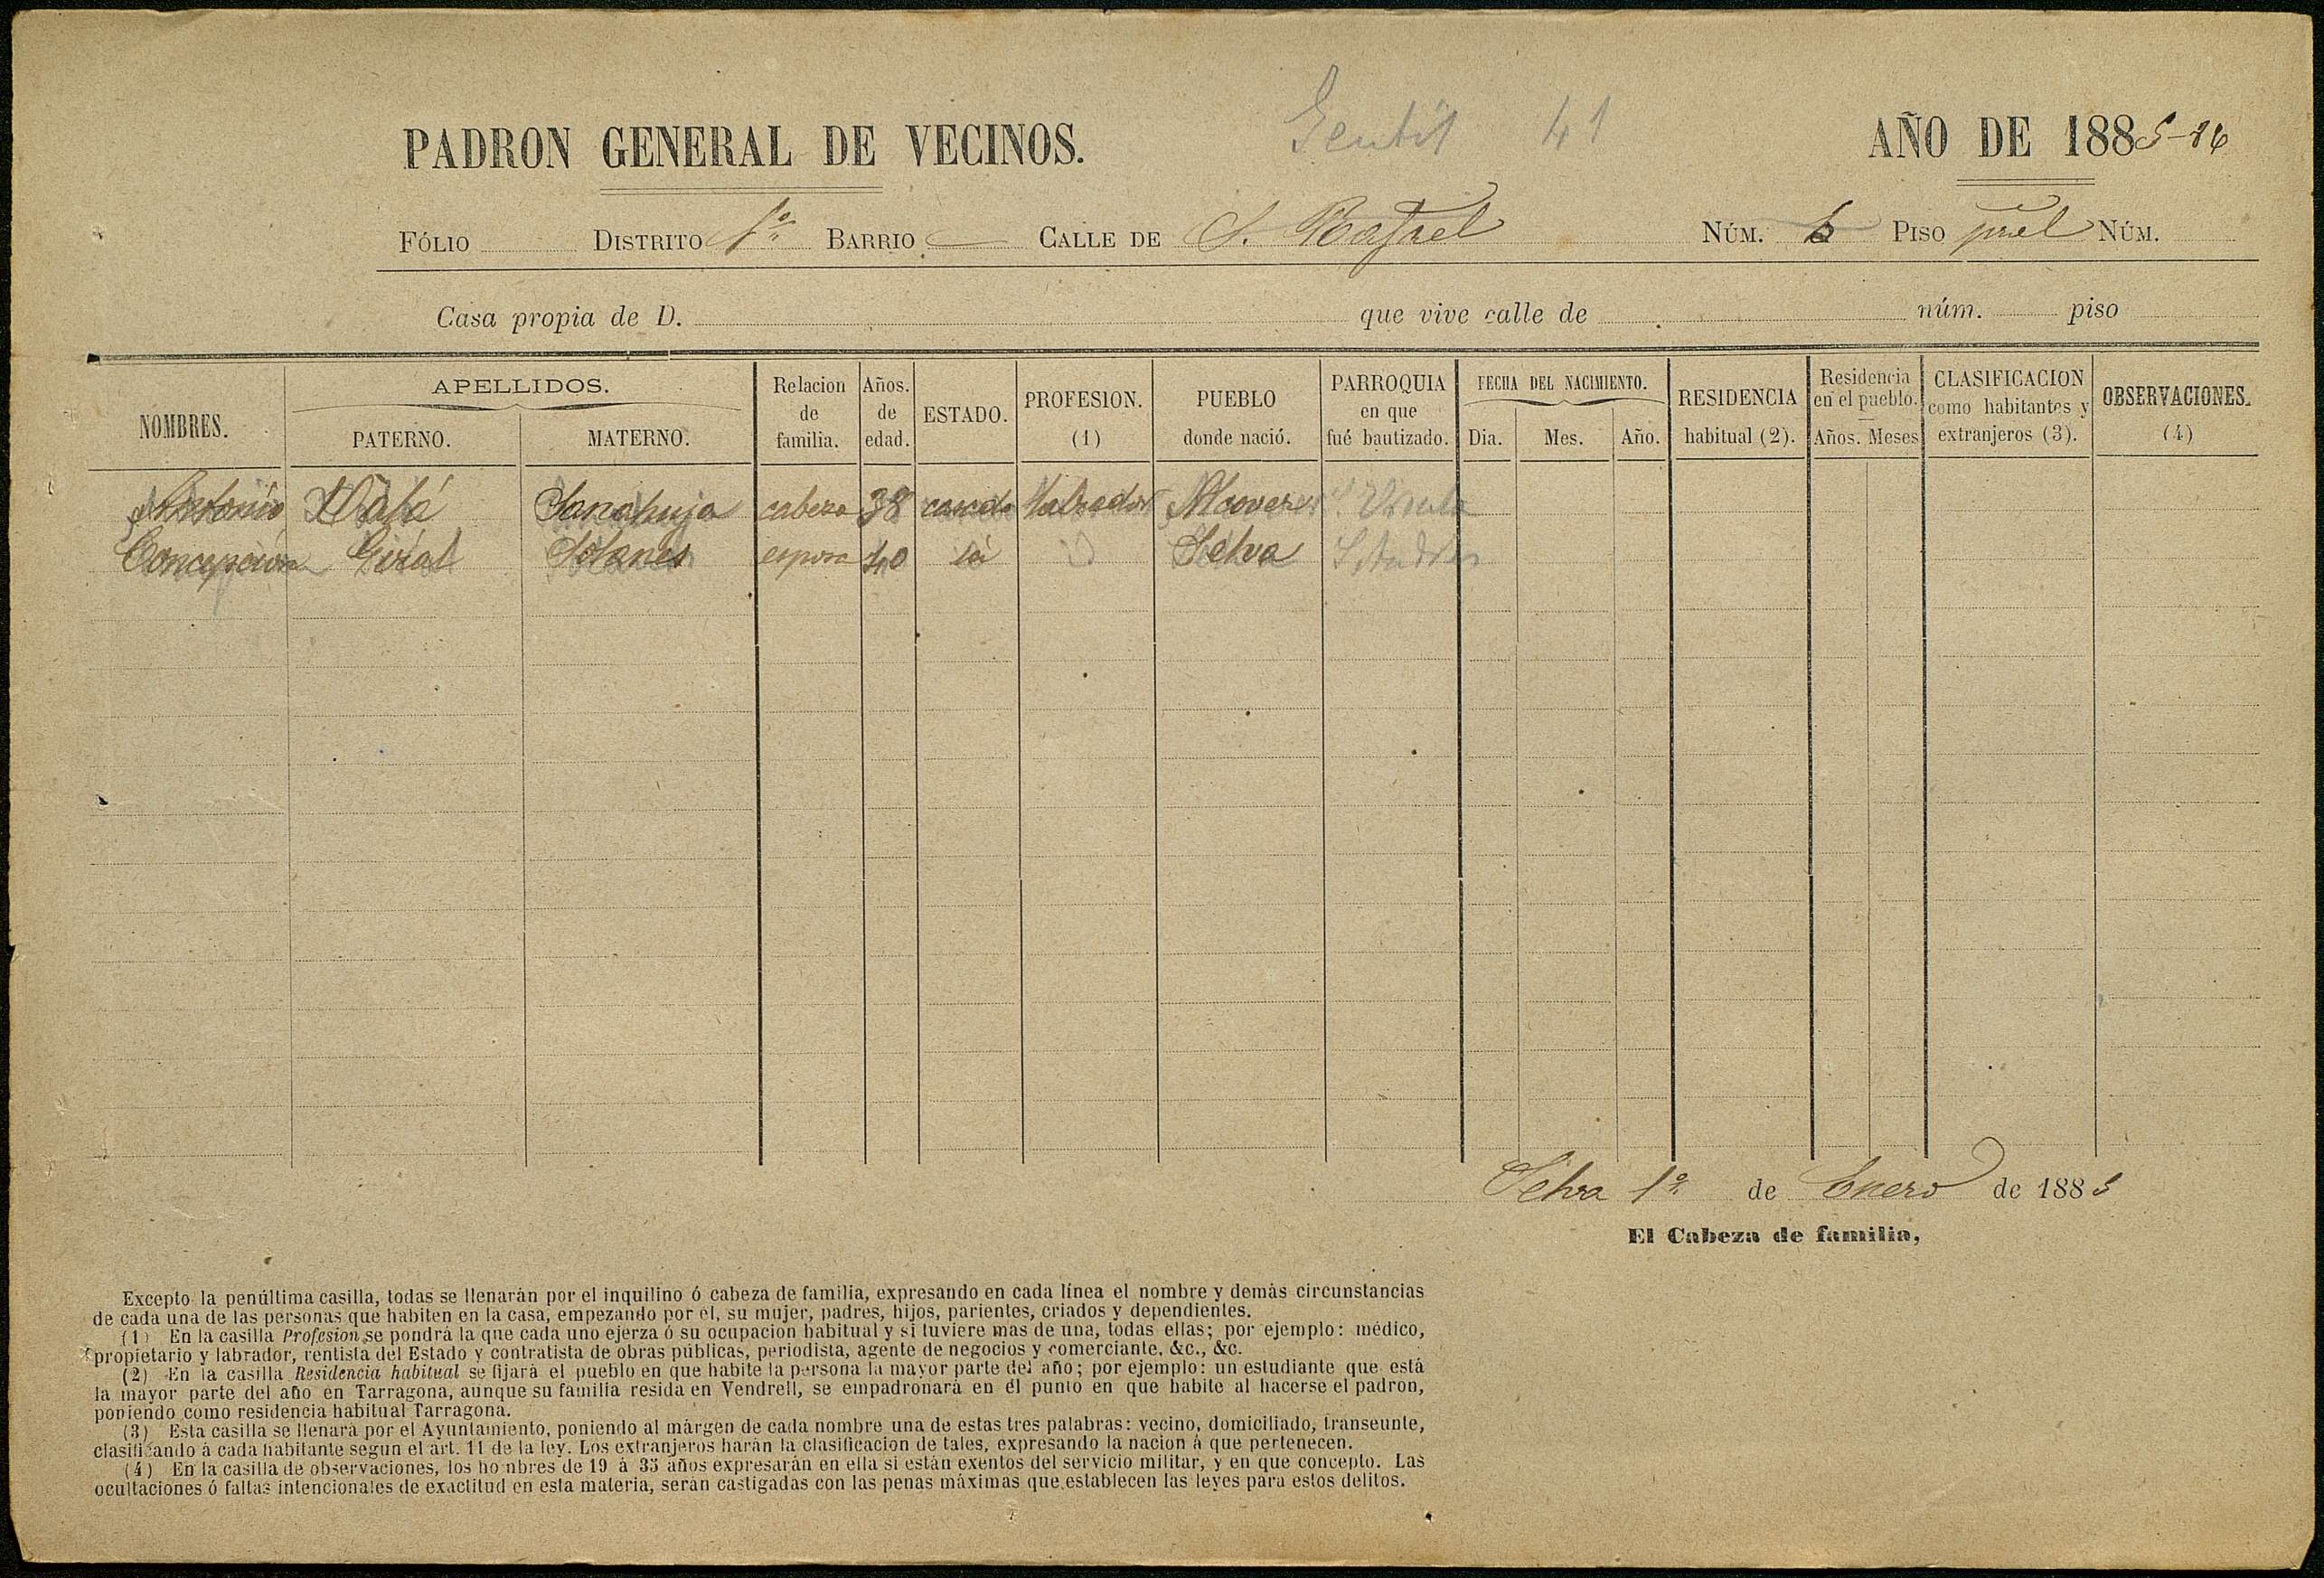 Gentil 41
PADRON GENERAL DE VECINOS.
AÑO DE 1885-86
FÓLIO DISTRITO 1º BARRIO — CALLE DE S. Rafael NÚM. PISO NÚM.
Casa propia de D. que vive calle de núm. piso
NOMBRES. APELLIDOS. PATERNO. MATERNO. Relacion de familia. Años. de edad. ESTADO. PROFESION. (1) PUEBLO donde nació. PARROQUIA en que fué bautizado. FECHA DEL NACIMIENTO. Dia. Mes. Año. RESIDENCIA habitual (2). Residencia en el pueblo. Años. Meses CLASIFICACION como habitantes y extranjeros (3). OBSERVACIONES. (4)
Antonio Sanahuja cabeza 38 casado labrador Alcover
Concepcion Giral Solanes esposa 40 id Selva S Andres
Selva 1º de Enero de 1885
El Cabeza de familia,
Excepto la penúltima casilla, todas se llenarán por el inquilino ó cabeza de familia, expresando en cada línea el nombre y demás circunstancias
de cada una de las personas que habiten en la casa, empezando por él, su mujer, padres, hijos, parientes, criados y dependientes.
(1) En la casilla Profesion se pondrá la que cada uno ejerza ó su ocupacion habitual y si tuviere mas de una, todas ellas; por ejemplo: médico,
propietario y labrador, rentista del Estado y contratista de obras públicas, periodista, agente de negocios y comerciante, &c., &c.
(2) En la casilla Residencia habitual se fijará el pueblo en que habite la persona la mayor parte del año; por ejemplo: un estudiante que está
la mayor parte del año en Tarragona, aunque su familia resida en Vendrell, se empadronará en el punto en que habite al hacerse el padron,
poniendo como residencia habitual Tarragona.
(3) Esta casilla se llenará por el Ayuntamiento, poniendo al márgen de cada nombre una de estas tres palabras: vecino, domiciliado, transeunte,
clasificando á cada habitante segun el art. 11 de la ley. Los extranjeros harán la clasificacion de tales, expresando la nacion á que pertenecen.
(4) En la casilla de observaciones, los hombres de 19 á 35 años expresarán en ella si están exentos del servicio militar, y en que concepto. Las
ocultaciones ó faltas intencionales de exactitud en esta materia, serán castigadas con las penas máximas que establecen las leyes para estos delitos.